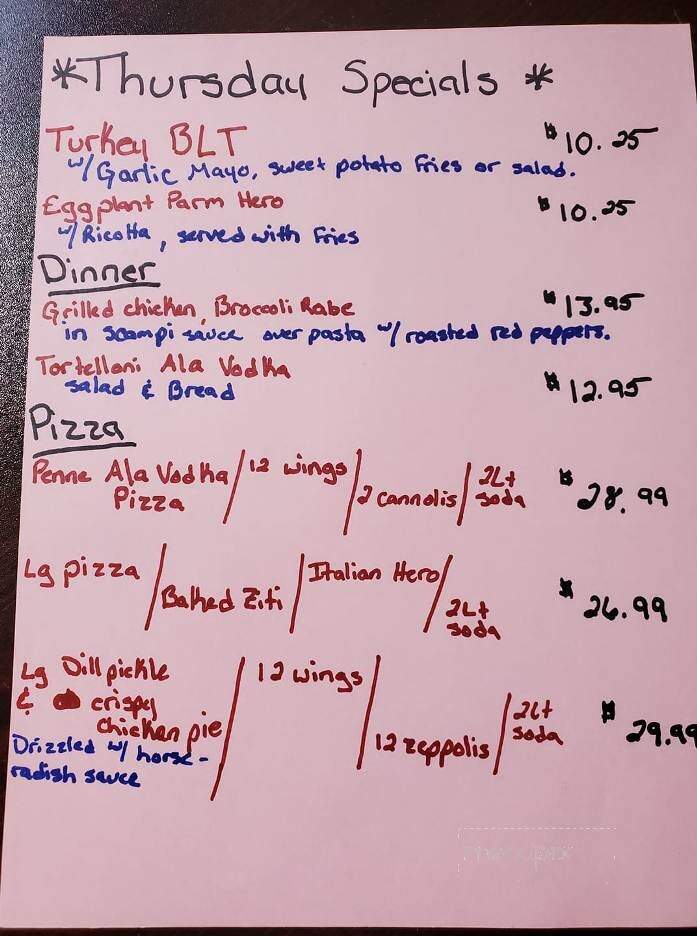 *Thursday Specials *
Turkey BLT $10.25
w/ Garlic Mayo, sweet potato fries or salad.
Eggplant Parm Hero $10.25
w/ Ricotta, served with Fries
Dinner
Grilled chicken, Broccoli Rabe $13.95
in scampi sauce over pasta w/ roasted red peppers.
Tortelloni Ala Vodka $12.95
salad & Bread
Pizza
Penne Ala Vodka Pizza / 12 wings / 2 cannolis / 2Lt soda $28.99
Lg pizza / Baked Ziti / Italian Hero / 2Lt soda $26.99
Lg Dill pickle & crispy chicken pie / 12 wings / 12 zeppolis / 2Lt soda $29.99
Drizzled w/ horse-
radish sauce